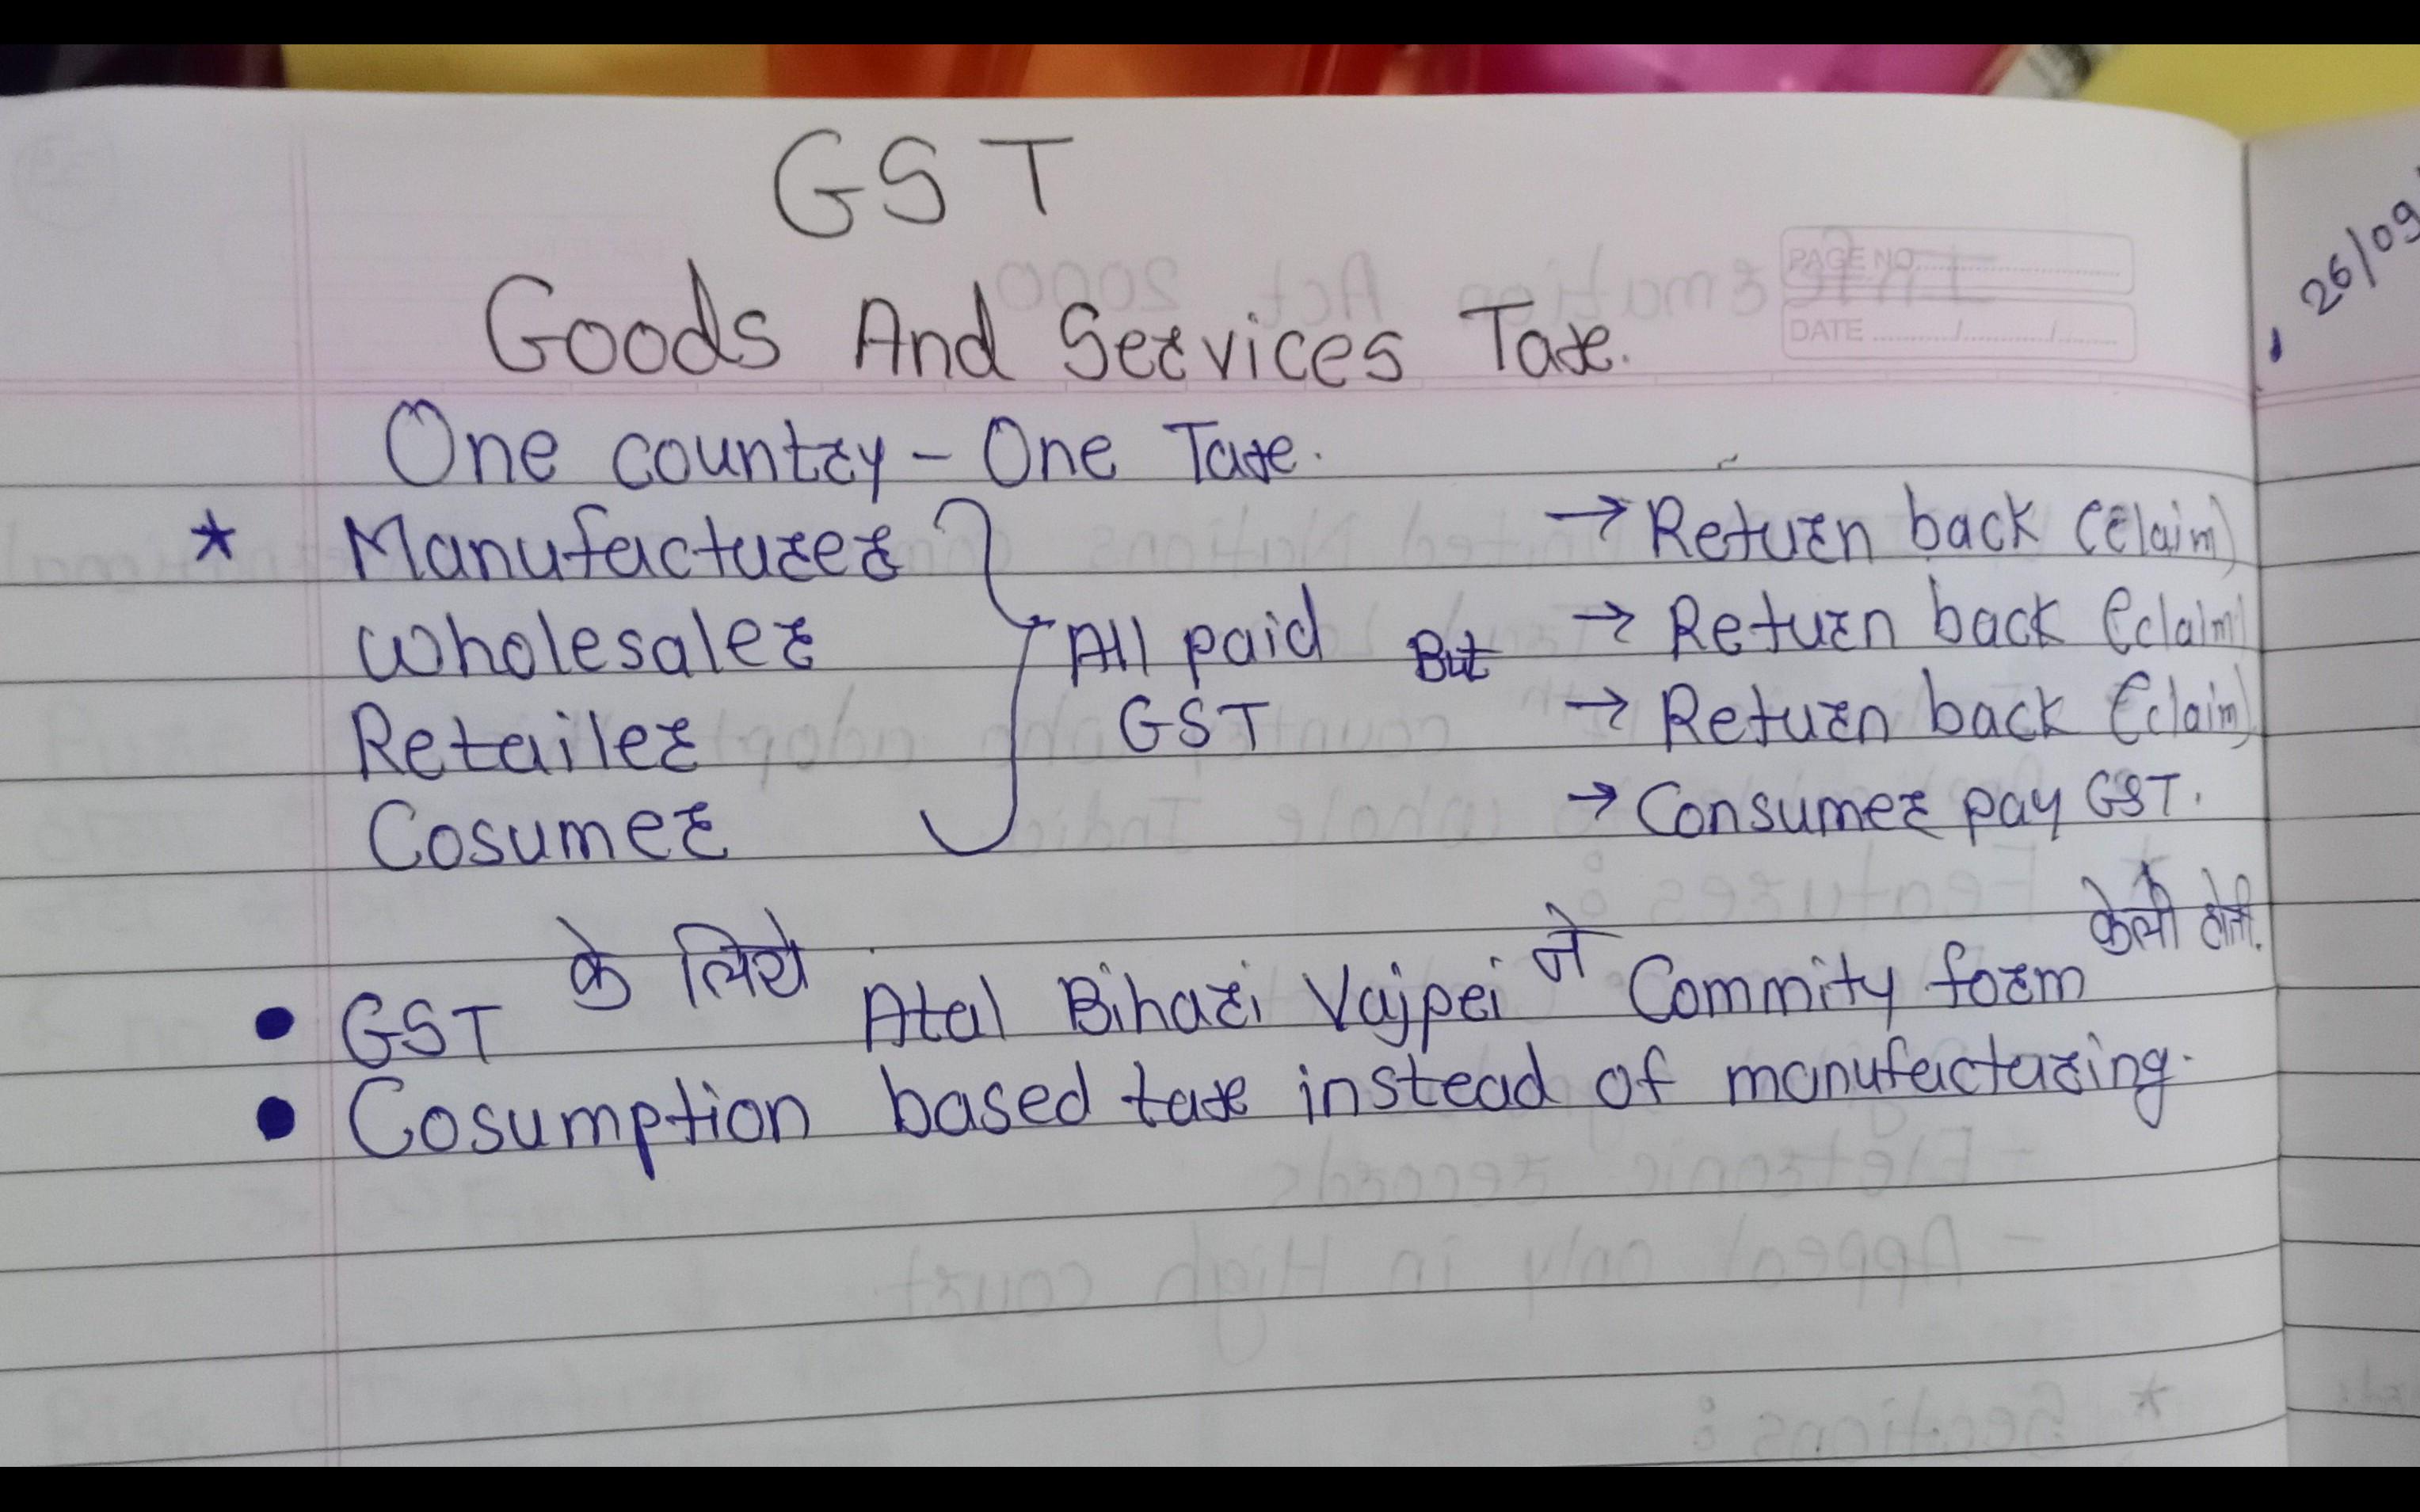 GST
Goods And Services Tax.
PAGE NO.
DATE / /
26/09
One country - One Tax.
* Manufacturer → Return back (claim)
Wholesaler All paid But → Return back (claim)
Retailer GST → Return back (claim)
Cosumer → Consumer pay GST.
• GST के लिये Atal Bihari Vajpei ने Commity form केली होती.
• Cosumption based tax instead of manufacturing.